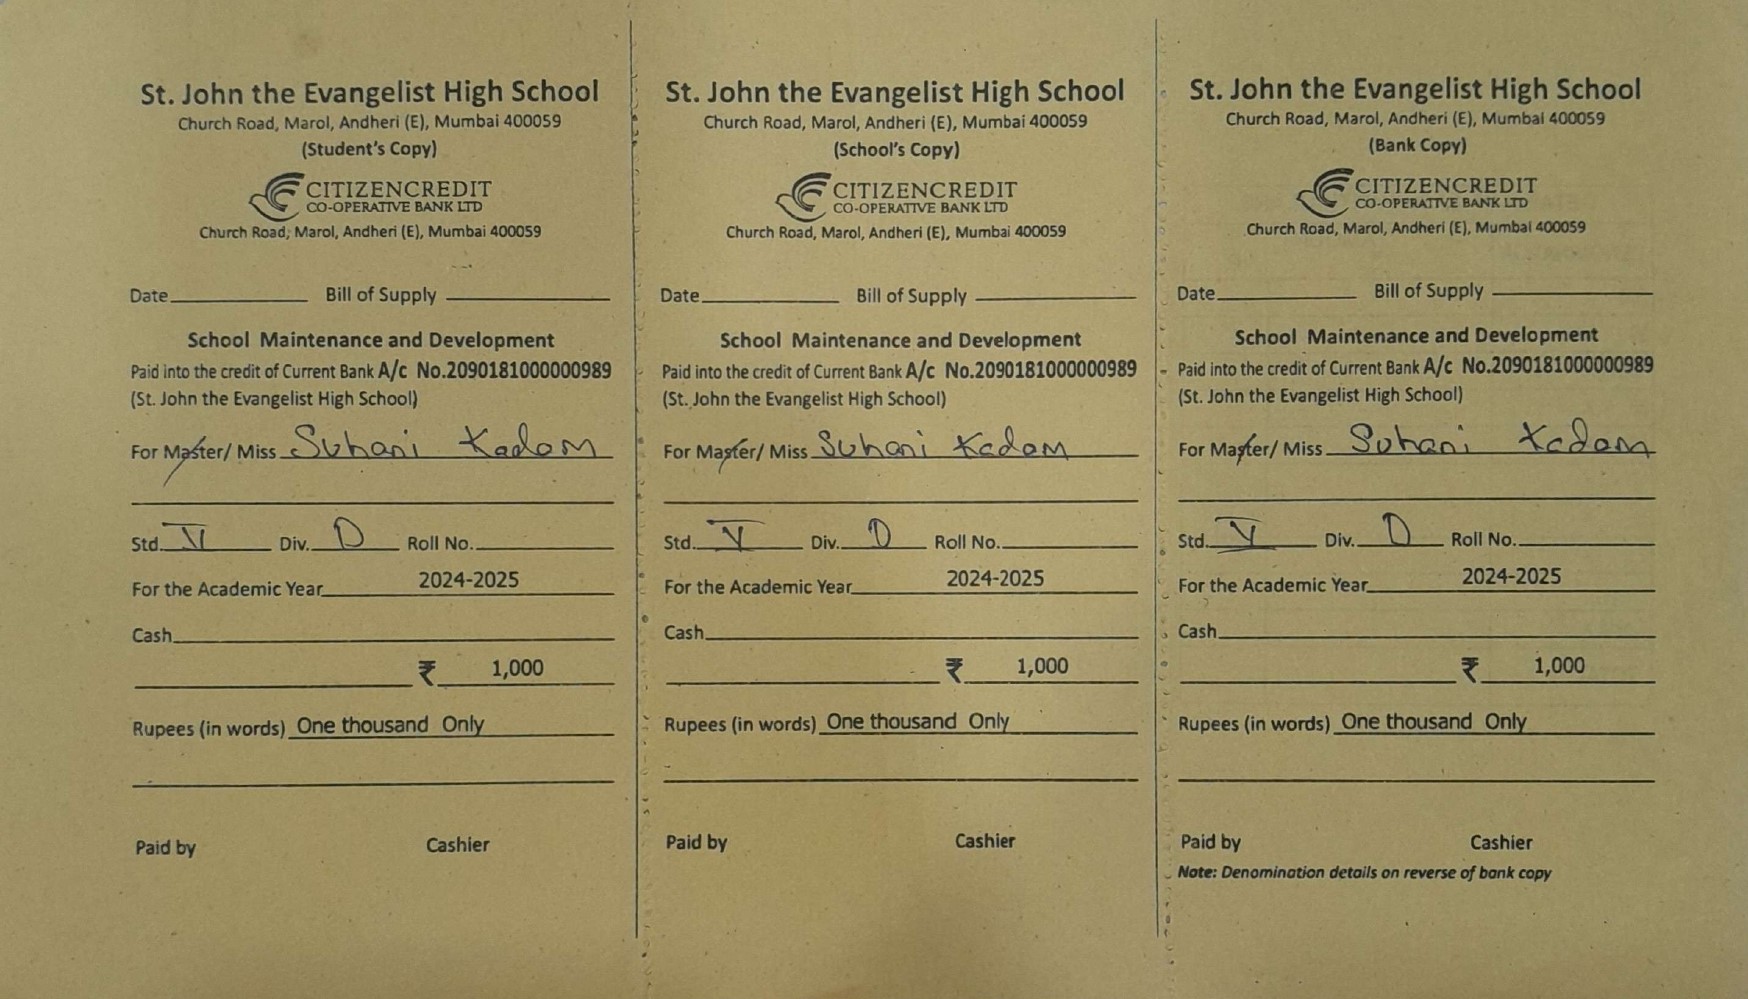 St. John the Evangelist High School
Church Road, Marol, Andheri (E), Mumbai 400059
(Student's Copy)
CITIZENCREDIT
CO-OPERATIVE BANK LTD
Church Road, Marol, Andheri (E), Mumbai 400059
Date Bill of Supply
School Maintenance and Development
Paid into the credit of Current Bank A/c No.2090181000000989
(St. John the Evangelist High School)
For Master/ Miss Suhani Kadam
Std. V Div. D Roll No.
For the Academic Year 2024-2025
Cash
₹ 1,000
Rupees (in words) One thousand Only
Paid by Cashier
St. John the Evangelist High School
Church Road, Marol, Andheri (E), Mumbai 400059
(School's Copy)
CITIZENCREDIT
CO-OPERATIVE BANK LTD
Church Road, Marol, Andheri (E), Mumbai 400059
Date Bill of Supply
School Maintenance and Development
Paid into the credit of Current Bank A/c No.2090181000000989
(St. John the Evangelist High School)
For Master/ Miss Suhani Kadam
Std. V Div. D Roll No.
For the Academic Year 2024-2025
Cash
₹ 1,000
Rupees (in words) One thousand Only
Paid by Cashier
St. John the Evangelist High School
Church Road, Marol, Andheri (E), Mumbai 400059
(Bank Copy)
CITIZENCREDIT
CO-OPERATIVE BANK LTD
Church Road, Marol, Andheri (E), Mumbai 400059
Date Bill of Supply
School Maintenance and Development
Paid into the credit of Current Bank A/c No.2090181000000989
(St. John the Evangelist High School)
For Master/ Miss Suhani Kadam
Std. V Div. D Roll No.
For the Academic Year 2024-2025
Cash
₹ 1,000
Rupees (in words) One thousand Only
Paid by Cashier
Note: Denomination details on reverse of bank copy